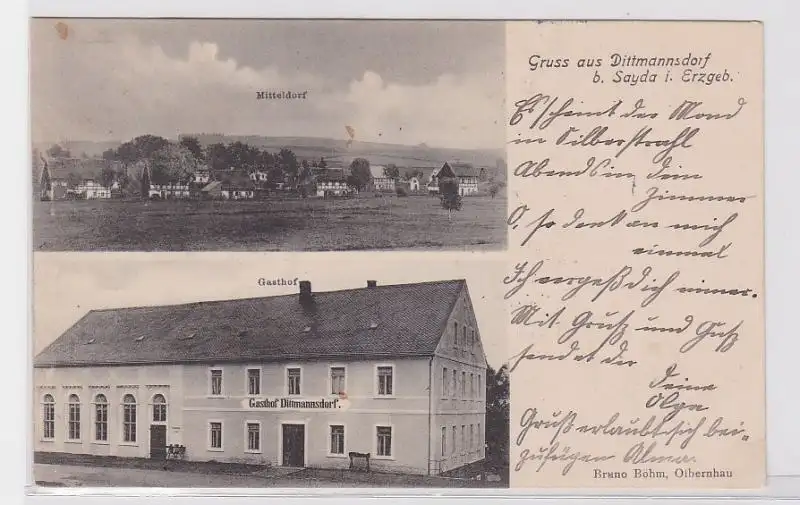 Mitteldorf
Gasthof
Gasthof Dittmannsdorf.
Gruss aus Dittmannsdorf
b. Sayda i. Erzgeb.
Es scheint der Mond
in Silberstrahl
Abends in dein
Zimmer
O, so denk an mich
einmal
Ich vergeß dich nimmer.
Mit Gruß und Kuß
sendet dir
Deine
Olga
Gruß erlaubt sich bei-
zufügen Alma.
Bruno Böhm, Olbernhau